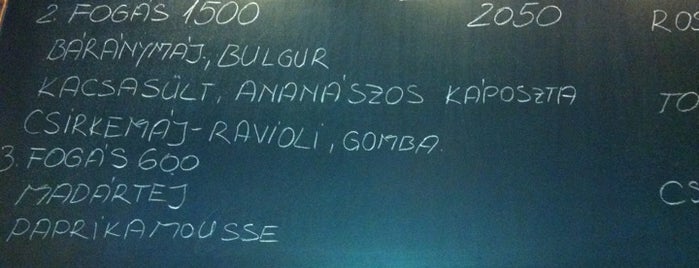 2. FOGÁS 1500 2050 ROS
BÁRÁNYMÁJ, BULGUR
KACSASÜLT, ANANÁSZOS KÁPOSZTA TO
CSIRKEMÁJ-RAVIOLI, GOMBA.
3. FOGÁS 600
MADÁRTEJ CS
PAPRIKAMOUSSE